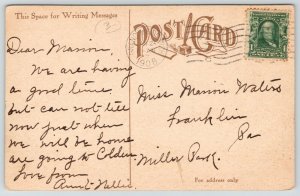 This Space for Writing Messages
POST CARD
1908
Dear Marion,
We are having
a good time,
but can not tell
now just when
we will be home
are going to Colden
love from
Aunt Nellie.
Miss Marion Waters
Franklin
Pa
Miller Park.
For address only